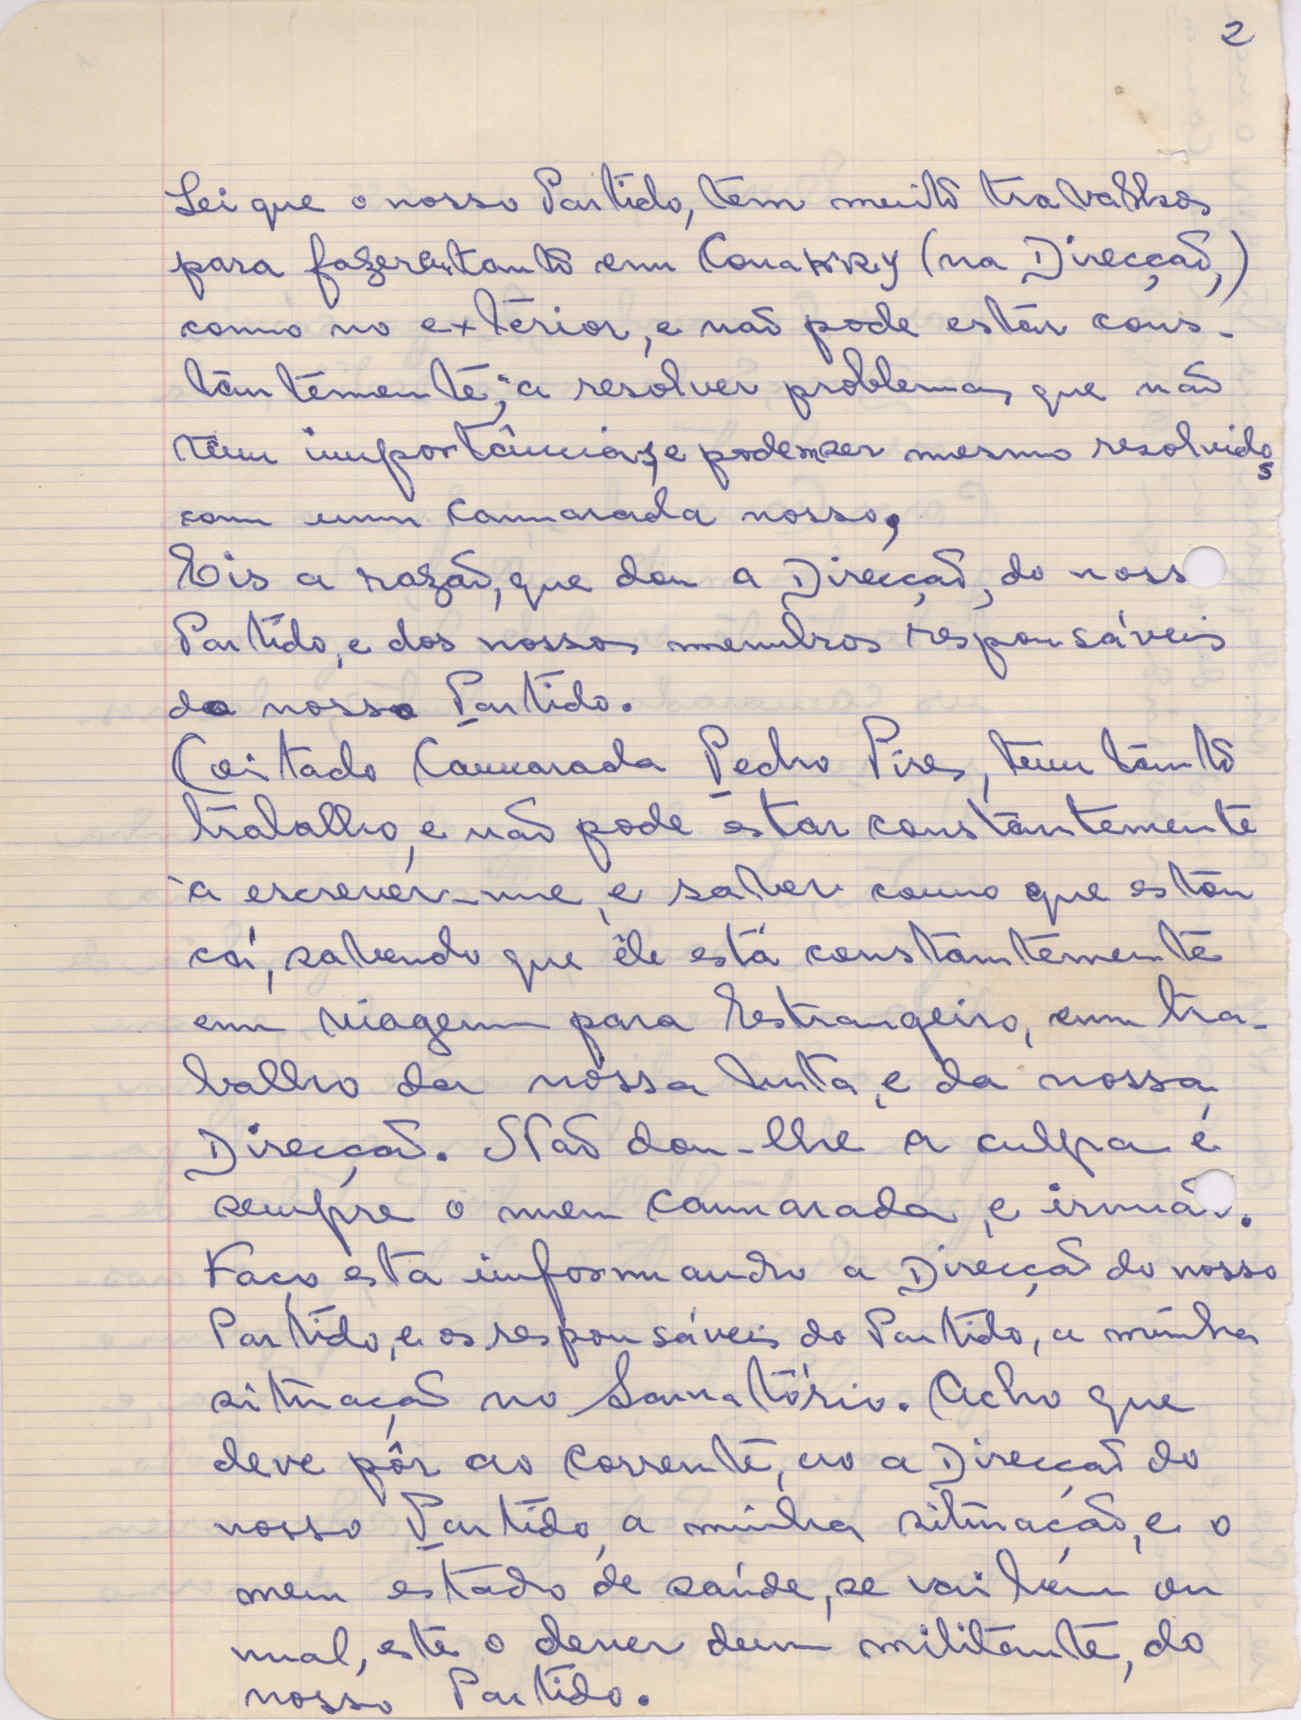 2
Sei que o nosso Partido, tem muito trabalhos
para fazer, tanto em Conakry (na Direcção,)
como no extérior, e não pode estár cons-
tântêmente, à resolver problemas, que não
têm importância, e podem ser mesmo resolvidos
com um camarada nosso,
Eis a razão, que dou a Direcção, do nosso
Partido, e dos nossos membros responsáveis
do nosso Partido.
Coitado Camarada Pedro Pires, tem tânto
trabalho, e não pode estar constântemente
à escrevêr-me, e saber como que estou
cá, sabendo que êle está constântemente
em viagem para Estrangeiro, em tra-
balho da nossa luta, e da nossa
Direcção. Não dou-lhe a culpa é
sempre o meu camarada, e irmão.
Faço esta informando a Direcção do nosso
Partido, e os responsáveis do Partido, a minha
situação no Sanatório. Acho que
deve pôr ao corrente, ao a Direcção do
nosso Partido, a minha situação, e o
meu estado de saúde, se vai bém ou
mal, este o dever dum militante, do
nosso Partido.